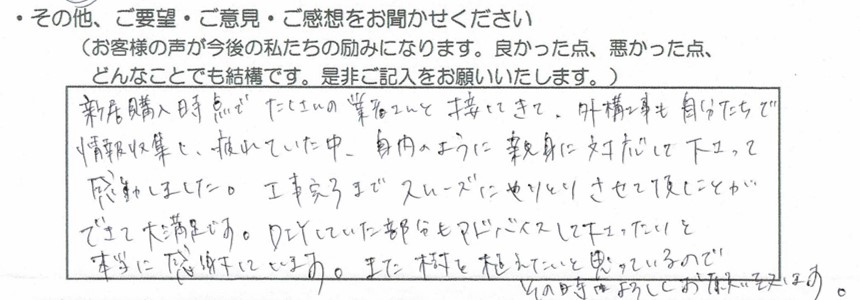 ・その他、ご要望・ご意見・ご感想をお聞かせください
（お客様の声が今後の私たちの励みになります。良かった点、悪かった点、
どんなことでも結構です。是非ご記入をお願いいたします。）
新居購入時点で たくさんの業者さんと接してきて、外構工事も自分たちで
情報収集し、疲れていた中、身内のように親身に対応して下さって
感動しました。工事完了までスムーズにやりとりさせて頂くことが
できて大満足です。DIYしていた部分もアドバイスして下さったりと
本当に感謝しています。また樹を植えたいと思っているので
その時はよろしくお願い致します。